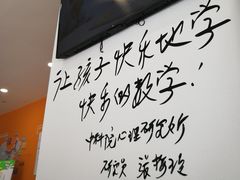 让孩子快乐地学
快乐的数学!
中科院心理研究所
研究员 张梅玲